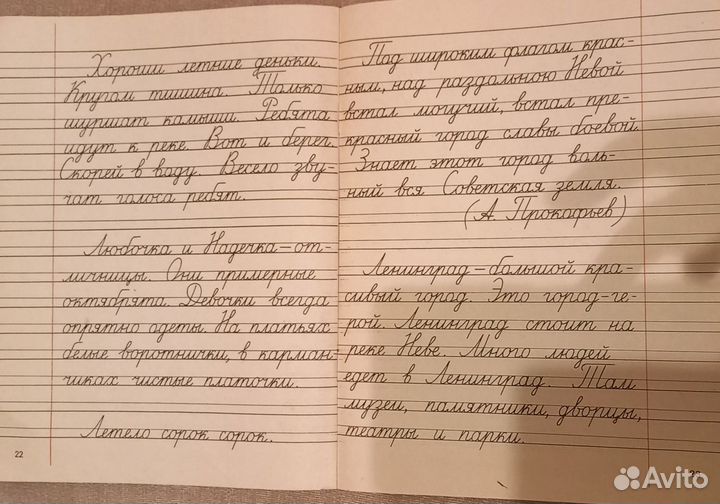 Хороши летние деньки.
Кругом тишина. Только
шуршат камыши. Ребята
идут к реке. Вот и берег.
Скорей в воду. Весело зву-
чат голоса ребят.
Любочка и Надечка — от-
личницы. Они примерные
октябрята. Девочки всегда
опрятно одеты. На платьях
белые воротнички, в карман-
чиках чистые платочки.
Летело сорок сорок.
22
Под широким флагом крас-
ным, над раздольною Невой
встал могучий, встал пре-
красный город славы боевой.
Знает этот город воль-
ный вся Советская земля.
(А. Прокофьев)
Ленинград — большой кра-
сивый город. Это город-ге-
рой. Ленинград стоит на
реке Неве. Много людей
едет в Ленинград. Там
музеи, памятники, дворцы,
театры и парки.
Avito